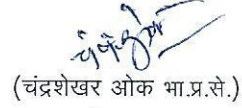 (चंद्रशेखर ओक भा.प्र.से.)